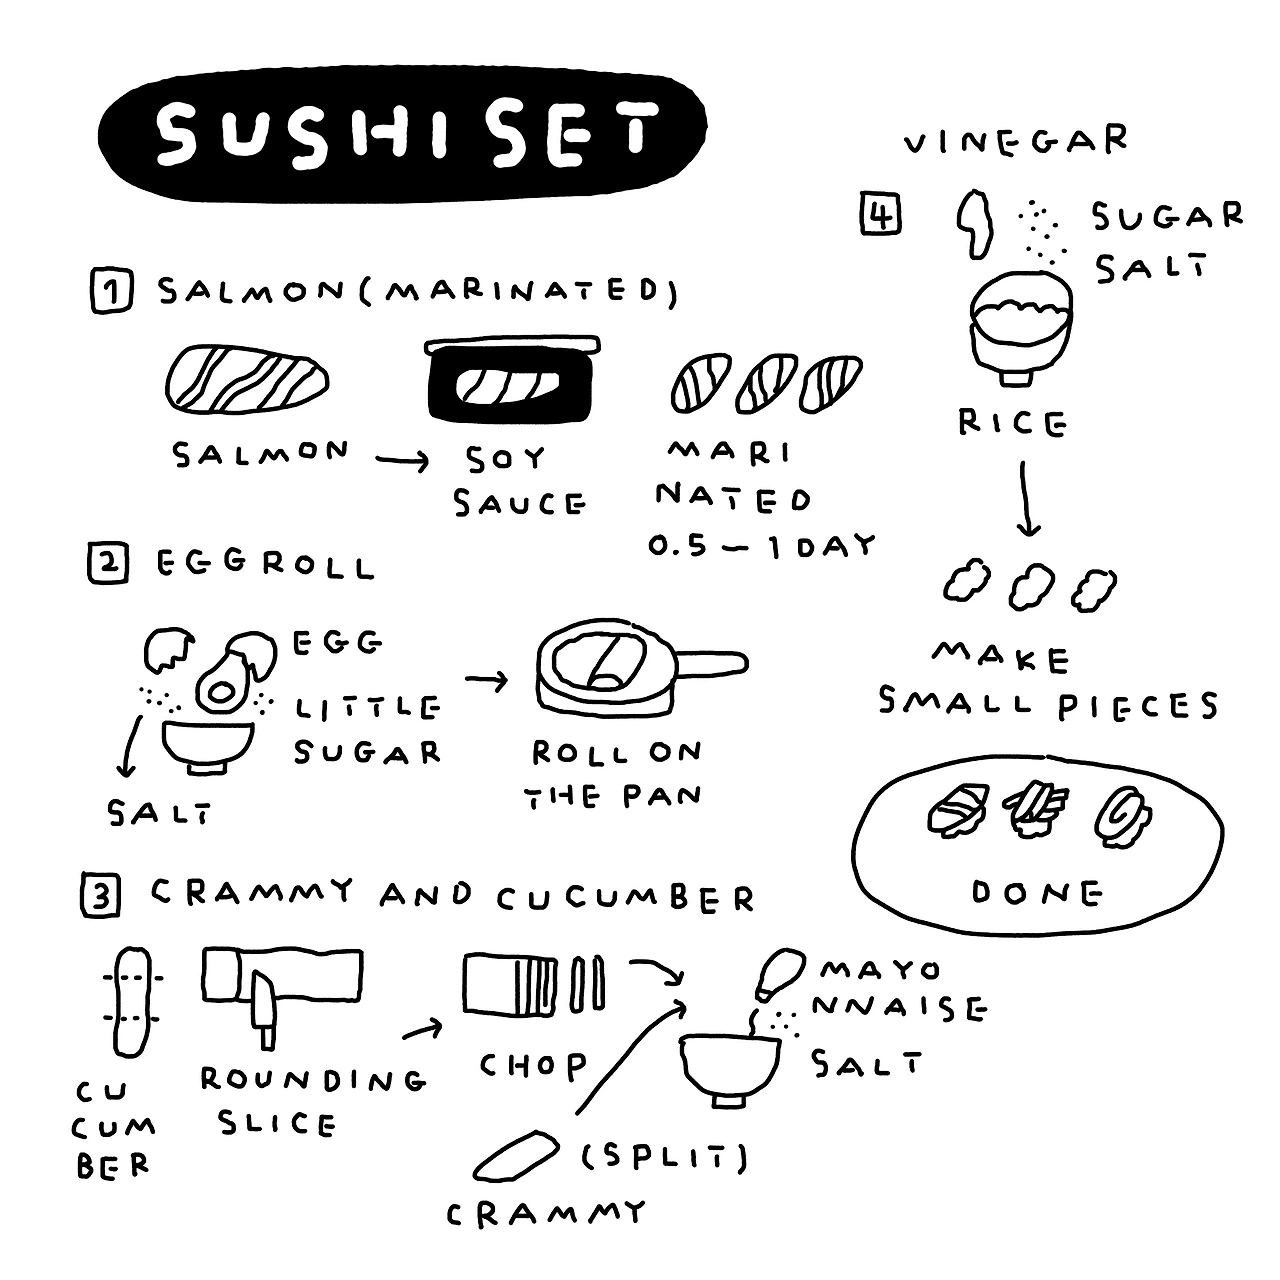 SUSHI SET
1 SALMON (MARINATED)
SALMON
SOY
SAUCE
MARI
NATED
0.5 – 1 DAY
2 EGGROLL
EGG
LITTLE
SUGAR
SALT
ROLL ON
THE PAN
3 CRAMMY AND CUCUMBER
CU
CUM
BER
ROUNDING
SLICE
CHOP
(SPLIT)
CRAMMY
MAYO
NNAISE
SALT
VINEGAR
4
SUGAR
SALT
RICE
MAKE
SMALL PIECES
DONE